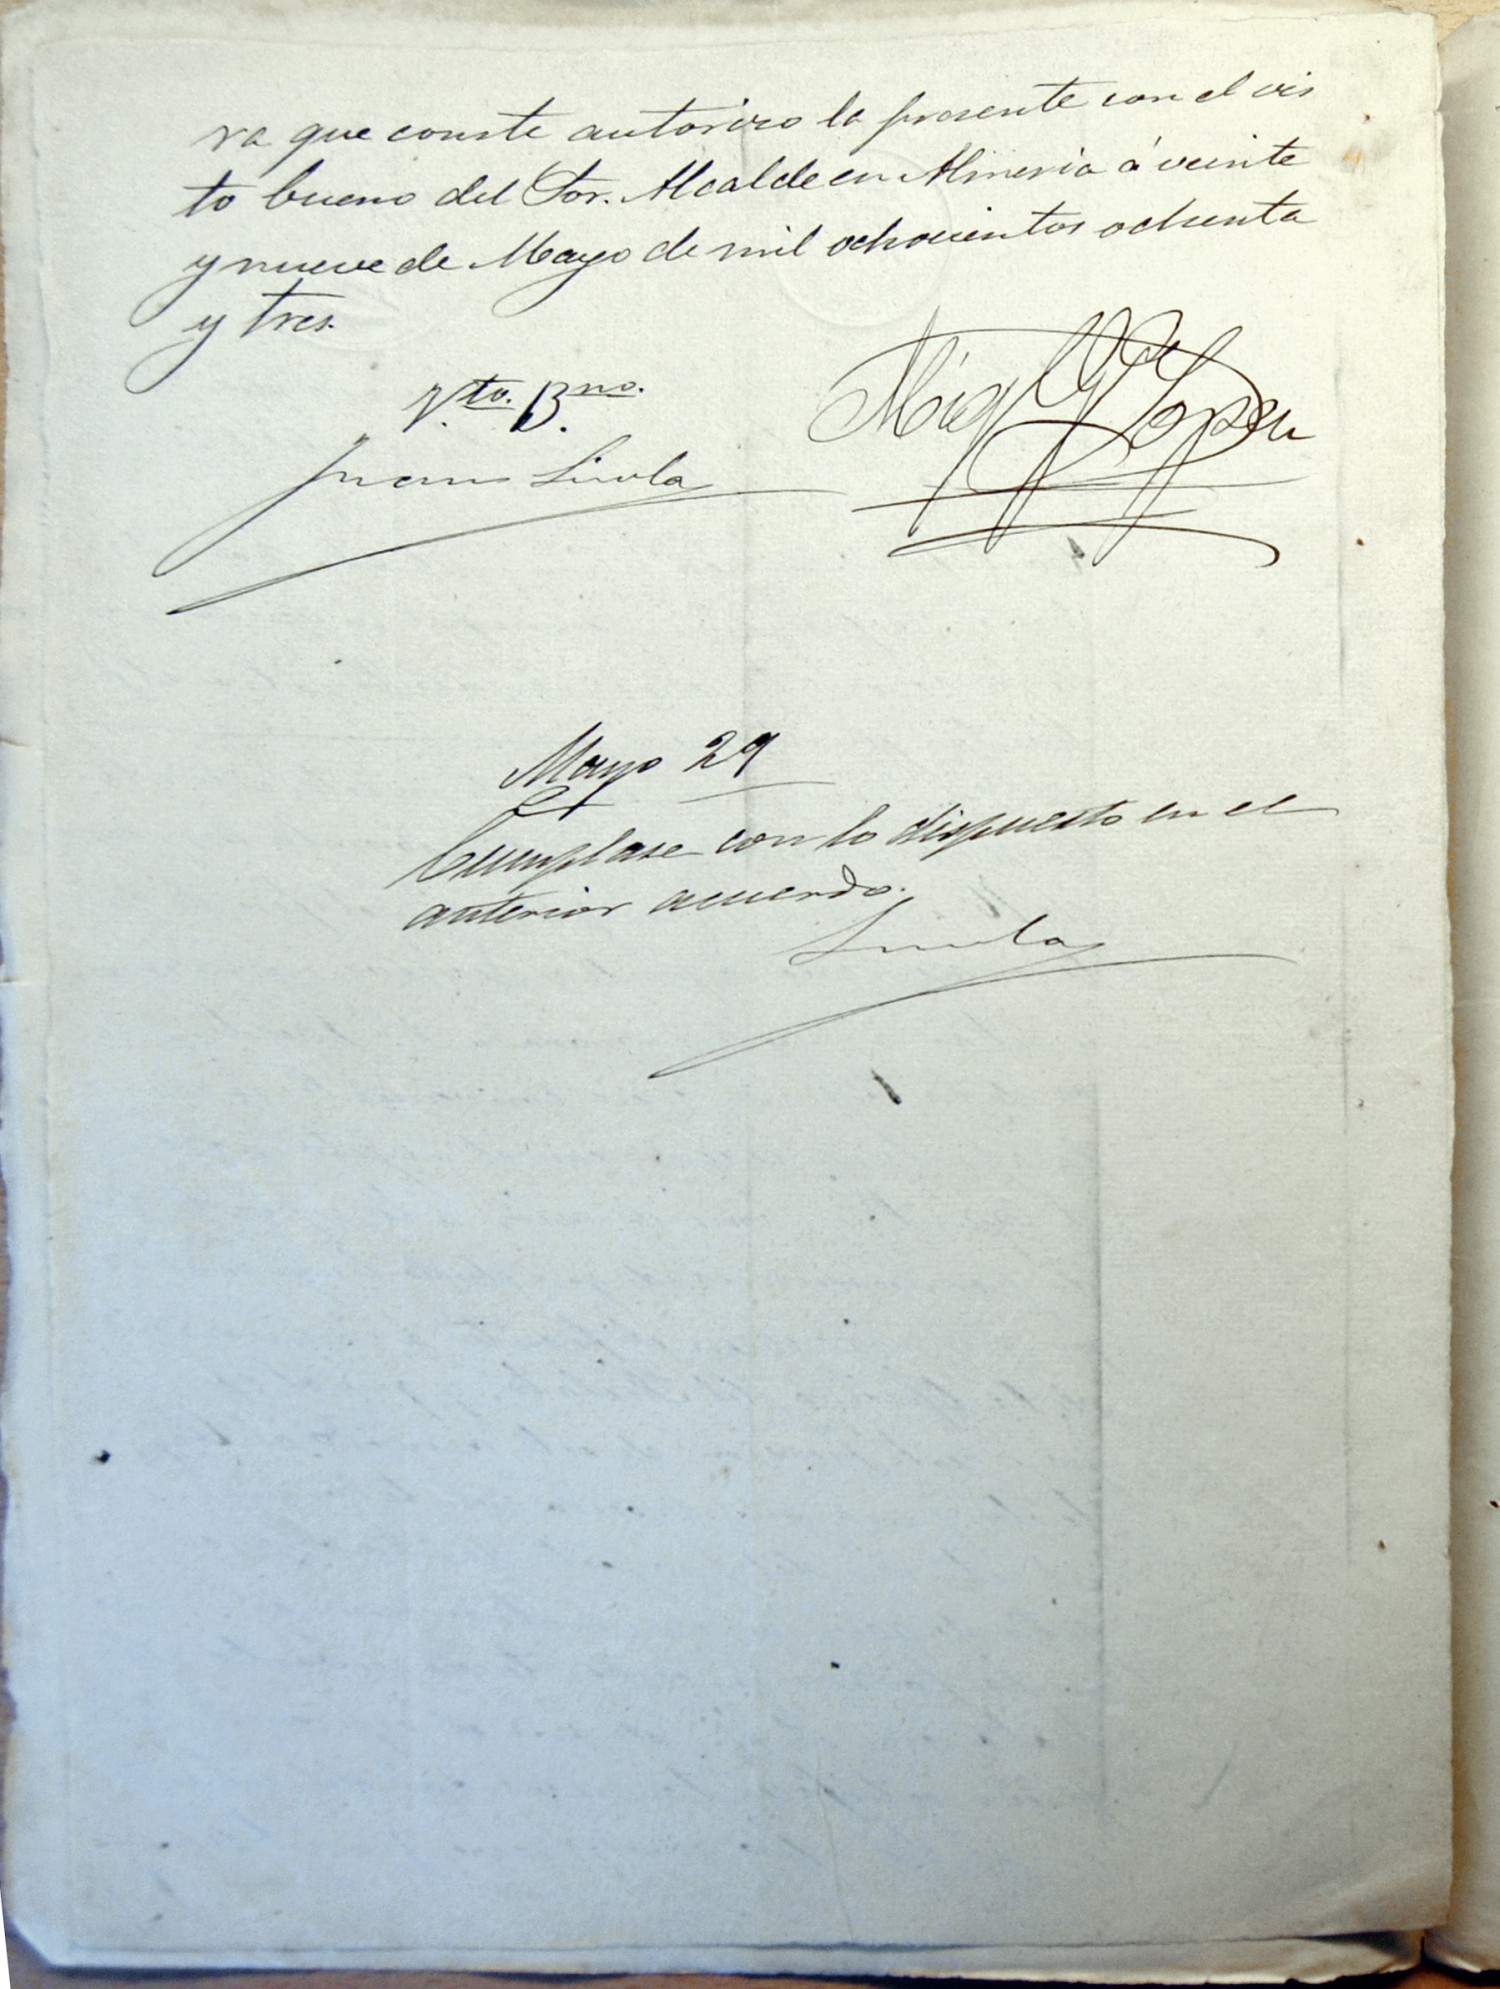 ra que conste autorizo la presente con el vis
to bueno del Sor. Alcalde en Almeria á veinte
y nueve de Mayo de mil ochocientos ochenta
y tres.
Vto. Bno.
Juan Lirola
Mayo 29
Cumplase con lo dispuesto en el
anterior acuerdo.
Lirola